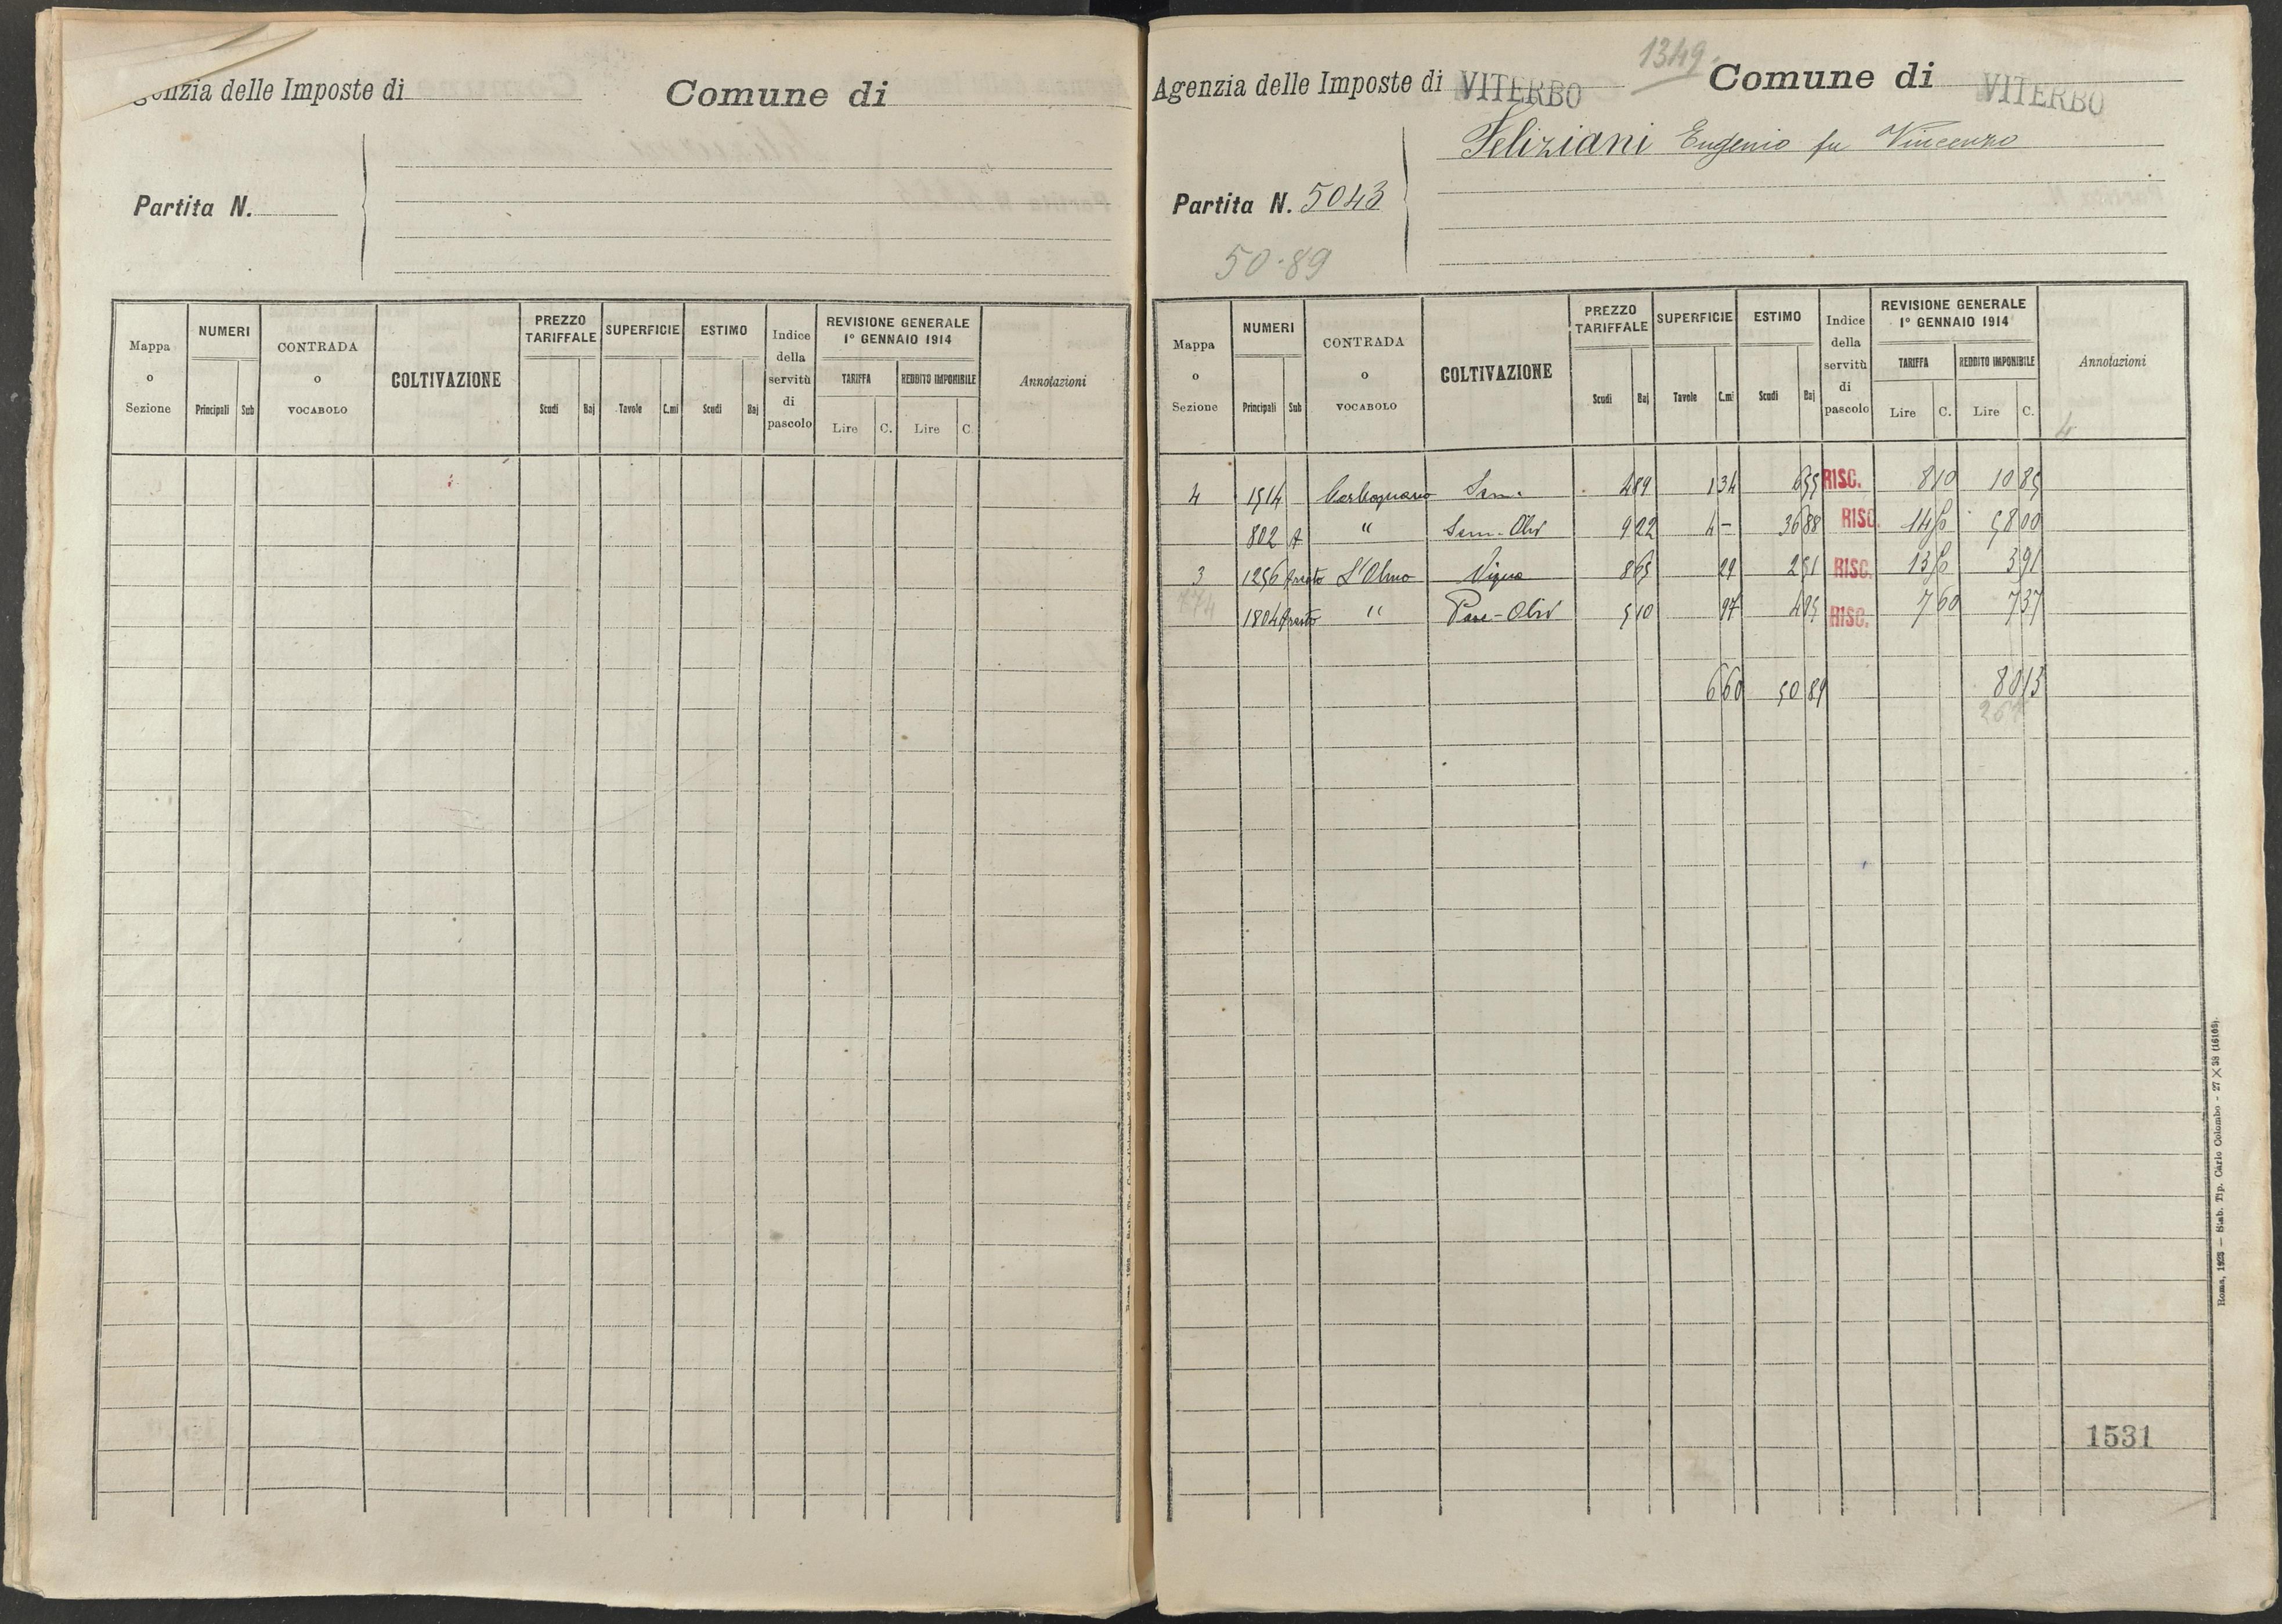 Agenzia delle Imposte di Comune di
Partita N.
Mappa o Sezione NUMERI Principali Sub CONTRADA o VOCABOLO COLTIVAZIONE PREZZO TARIFFALE Scudi Baj SUPERFICIE Tavole C.mi ESTIMO Scudi Baj Indice della servitù di pascolo REVISIONE GENERALE 1° GENNAIO 1914 TARIFFA Lire C. REDDITO IMPONIBILE Lire C. Annotazioni
1349.
Agenzia delle Imposte di VITERBO Comune di VITERBO
Feliziani Eugenio fu Vincenzo
Partita N. 5043
50.89
Mappa o Sezione NUMERI Principali Sub CONTRADA o VOCABOLO COLTIVAZIONE PREZZO TARIFFALE Scudi Baj SUPERFICIE Tavole C.mi ESTIMO Scudi Baj Indice della servitù di pascolo REVISIONE GENERALE 1° GENNAIO 1914 TARIFFA Lire C. REDDITO IMPONIBILE Lire C. Annotazioni
4
4 1514 Sem. 4 89 1 34 6 55 RISC. 8 10 10 85
802 A " Sem-Oliv 9 22 4 - 36 88 RISC. 14 50 58 00
3 1256 L'Olmo Vigna 8 65 29 2 51 RISC. 13 50 3 91
1804 " Pas-Oliv 5 10 97 4 95 RISC. 7 60 7 37
6 60 50 89 80 13
1531
Roma, 1925 — Stab. Tip. Carlo Colombo - 27 X 38 (16109).